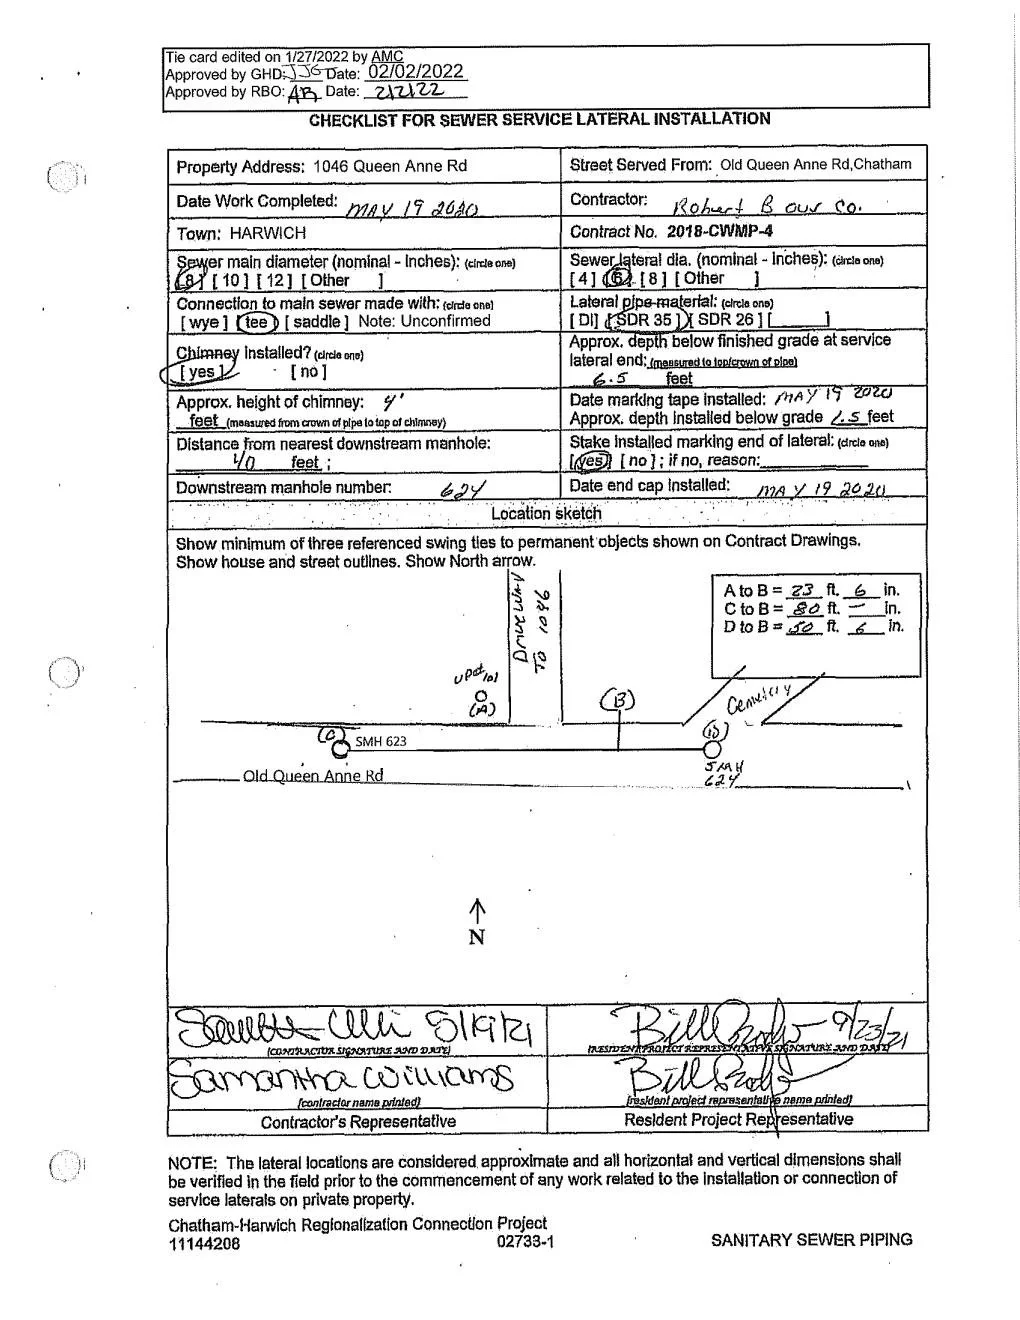 Tie card edited on 1/27/2022 by AMC
Approved by GHD: JJG Date: 02/02/2022
Approved by RBO: AB Date: 2/2/22
CHECKLIST FOR SEWER SERVICE LATERAL INSTALLATION
Property Address: 1046 Queen Anne Rd
Street Served From: Old Queen Anne Rd,Chatham
Date Work Completed: MAY 19 2020
Contractor: Robert B our Co.
Town: HARWICH
Contract No. 2018-CWMP-4
Sewer main diameter (nominal - Inches): (circle one)
[8] [ 10 ] [ 12 ] [ Other ]
Sewer lateral dia. (nominal - Inches): (circle one)
[ 4 ] [6] [ 8 ] [ Other ]
Connection to main sewer made with: (circle one)
[ wye ] [ tee ] [ saddle ] Note: Unconfirmed
Lateral pipe material: (circle one)
[ DI] [ SDR 35 ] [ SDR 26 ] [ ]
Chimney Installed? (circle one)
[ yes ] [ no ]
Approx. depth below finished grade at service
lateral end: (measured to top/crown of pipe)
6.5 feet
Approx. height of chimney: 4'
feet (measured from crown of pipe to top of chimney)
Date marking tape installed: MAY 19 2020
Approx. depth Installed below grade 1.5 feet
Distance from nearest downstream manhole:
40 feet ;
Stake Installed marking end of lateral: (circle one)
[yes] [ no ] ; if no, reason:
Downstream manhole number: 624
Date end cap Installed: MAY 19 2020
Location sketch
Show minimum of three referenced swing ties to permanent objects shown on Contract Drawings.
Show house and street outlines. Show North arrow.
A to B = 23 ft. 6 in.
C to B = 80 ft. — in.
D to B = 50 ft. 6 in.
Driveway
To 1046
(A)
(B)
Cemetery
(C)
SMH 623
(D)
SMH
624
Old Queen Anne Rd
N
5/19/21
9/23/21
(CONTRACTOR SIGNATURE AND DATE)
(RESIDENT PROJECT REPRESENTATIVE SIGNATURE AND DATE)
Samantha Williams
(contractor name printed)
(resident project representative name printed)
Contractor's Representative
Resident Project Representative
NOTE: The lateral locations are considered approximate and all horizontal and vertical dimensions shall
be verified in the field prior to the commencement of any work related to the Installation or connection of
service laterals on private property.
Chatham-Harwich Regionalization Connection Project
11144208
02733-1
SANITARY SEWER PIPING